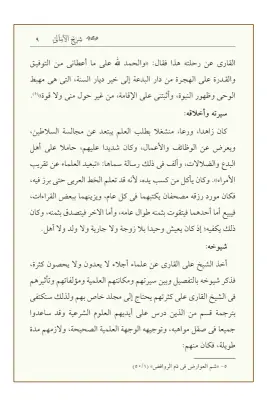 شرح الأمالي ٩
القارى عن رحلته هذا فقال: «والحمد لله على ما أعطانى من التوفيق
والقدرة على الهجرة من دار البدعة إلى خير ديار السنة، التى هى مهبط
الوحى وظهور النبوة، وأثبتنى على الإقامة، من غير حول منى ولا قوة»(٥).
سيرته وأخلاقه:
كان زاهدا، ورعا، منشغلا بطلب العلم يبتعد عن مجالسة السلاطين،
ويعرض عن الوظائف والأعمال، وكان شديدا عليهم، حاملا على أهل
البدع والضلالات، وألف فى ذلك رسالة سماها: «تبعيد العلماء عن تقريب
الأمراء». وكان يأكل من كسب يده، لأنه قد تعلم الخط العربى حتى برز فيه،
فكان مورد رزقه مصحفان يكتبهما فى كل عام، ويزينهما ببعض القراءات،
فيبيع أما أحدهما فيتقوت بثمنه طوال عامه، وأما الاخر فيتصدق بثمنه، وكان
ذلك يكفيه؛ إذ كان يعيش وحيدا بلا زوجة ولا جارية ولا ولد ولا أهل.
شيوخه:
أخذ الشيخ على القارى عن علماء أجلاء لا يعدون ولا يحصون كثرة،
فذكر شيوخه بالتفصيل وبين سيرتهم ومكانتهم العلمية ومؤلفاتهم وتأثيرهم
فى الشيخ القارى على كثرتهم يحتاج إلى مجلد خاص بهم ولذلك سنكتفى
بترجمة قسم من الذين درس على أيديهم العلوم الشرعية وقد ساعدوا
جميعا فى صقل مواهبه، وتوجيهه الوجهة العلمية الصحيحة، ولازمهم مدة
طويلة، فكان منهم:
٥ - «شم العوارض فى ذم الروافض» (٥٠/١)